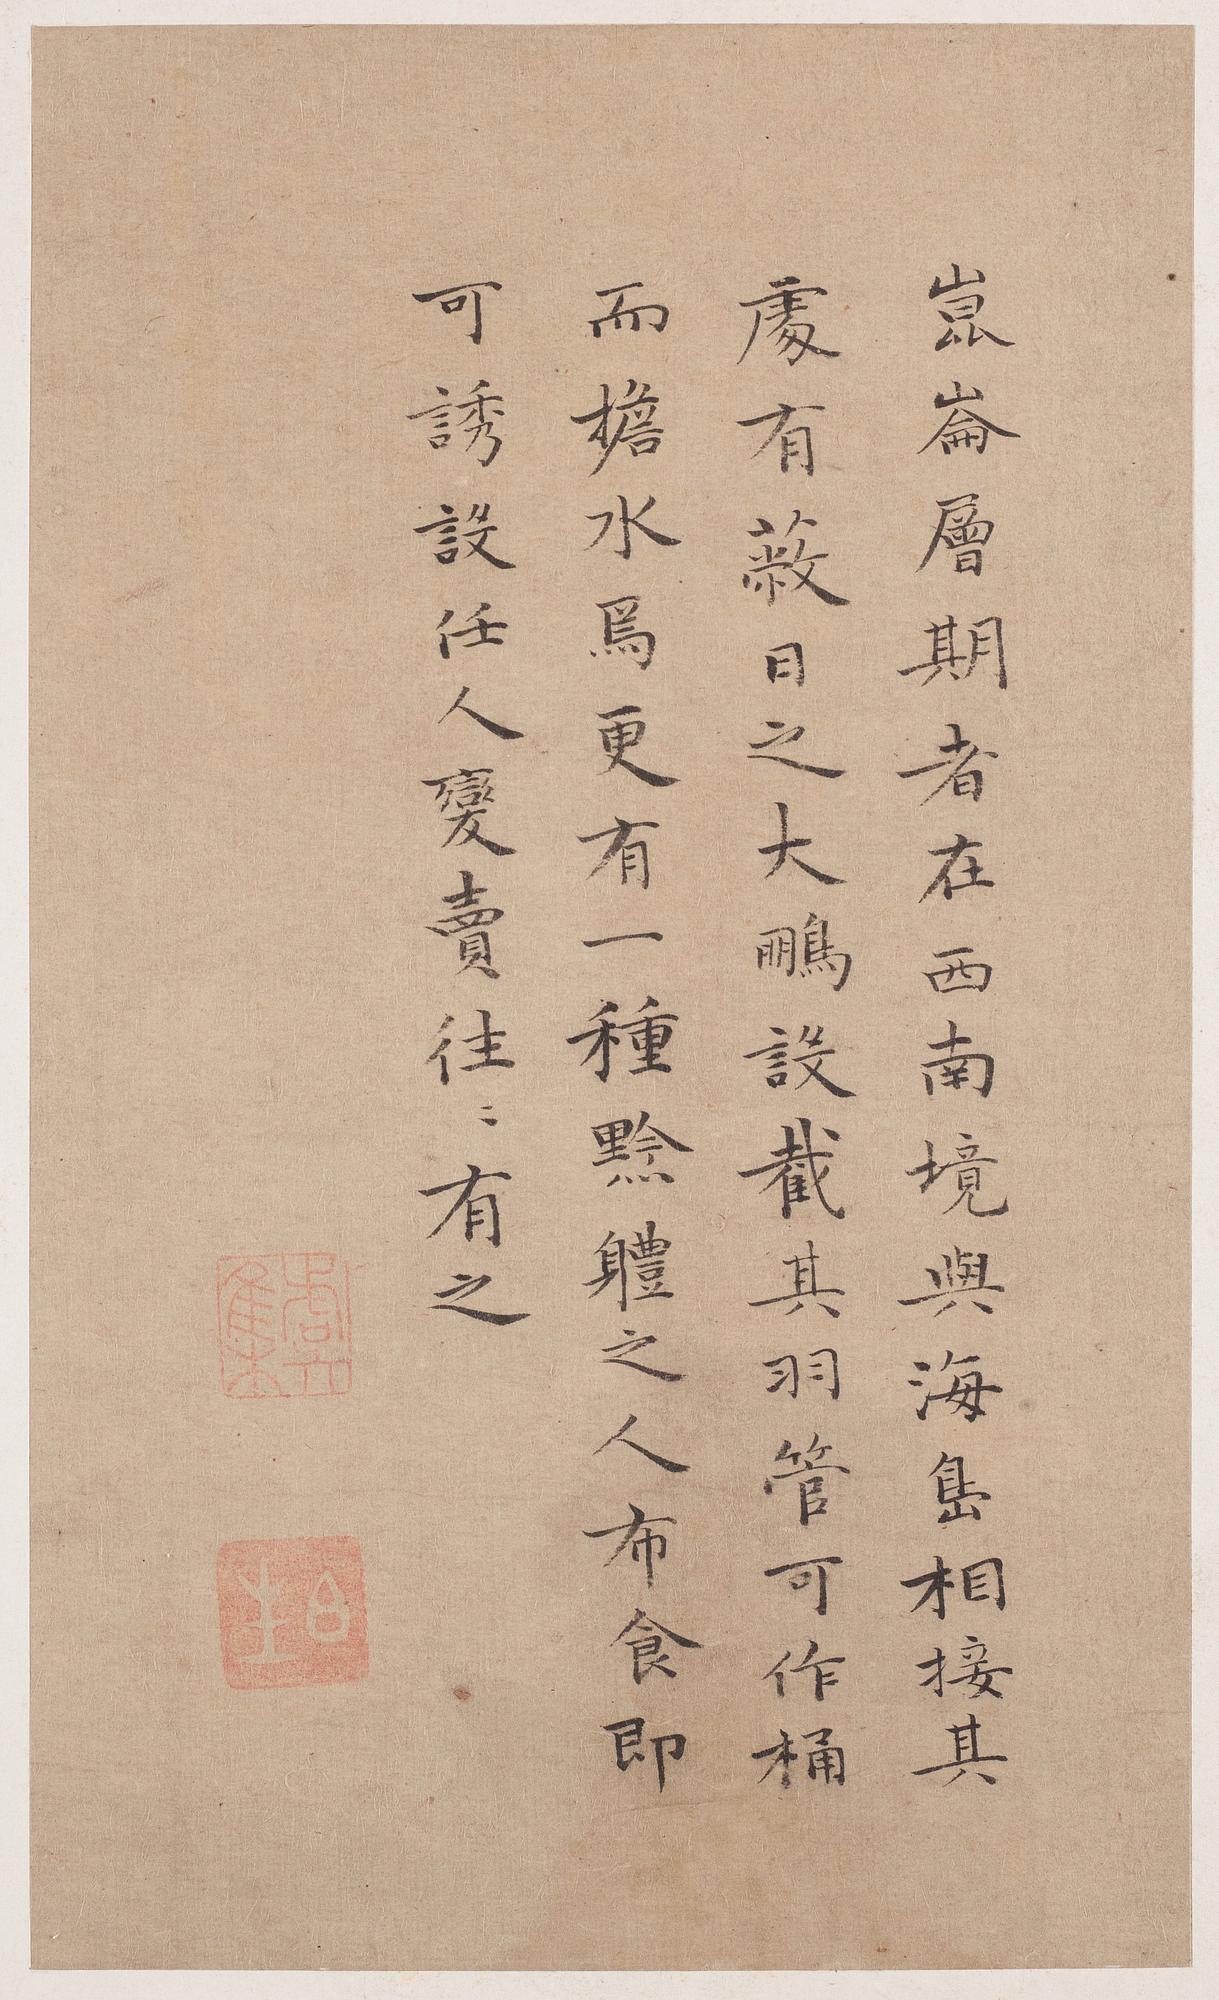 崑崙層期者在西南境與海島相接其
處有蔽日之大鵬設截其羽管可作桶
而擔水焉更有一種黥軆之人布食即
可誘設任人變賣往〻有之